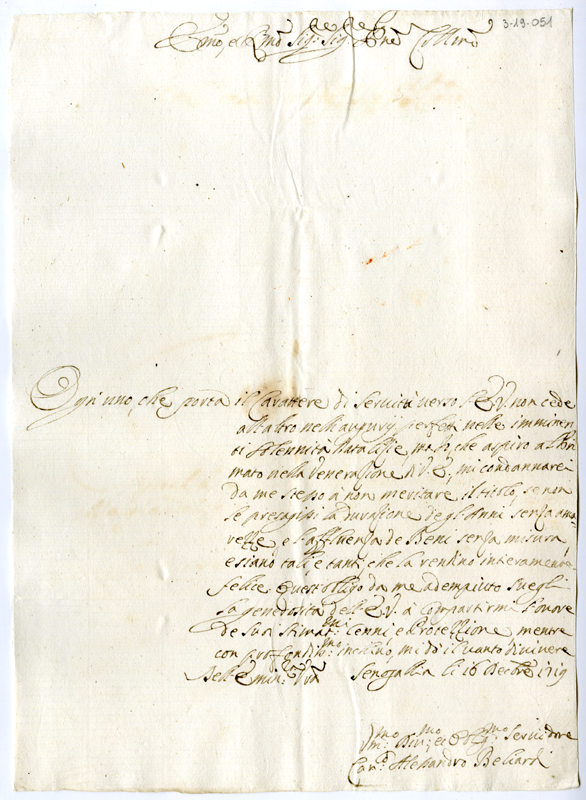 3-19-051
Emo, e Rmo Sig.re Sig.re Pne Collmo
Ogn'uno, che porta il Carattere di Servitù verso l'E.V. non cede
all'altro nell'augurarj perfeta nelle imminen
ti solennità Natalizie, ma Io, che aspiro al Pri
mato nella venerazione di V.E., mi condannarei
da me stesso à non meritare il titolo, se non
le presagissi la durazione degl'Anni senza ama
rezze, e l'affluenza de Beni senza misura,
e siano tali, e tanti, che la rendino interamente
felice. Quest'obligo da me adempiuto svegli
la generosità dell'E.V. à compartirmi l'onore
de suoi stimat.mi cenni, e Protezzione, mentre
con profondiss.mo inchino, mi dò il vanto di vivere
Dell'Emin.za V'ra Senegallia li 16 Decebre 1719
Um.mo Div.mo et Obl.mo Servidore
Cav.e Alessandro Beliardi